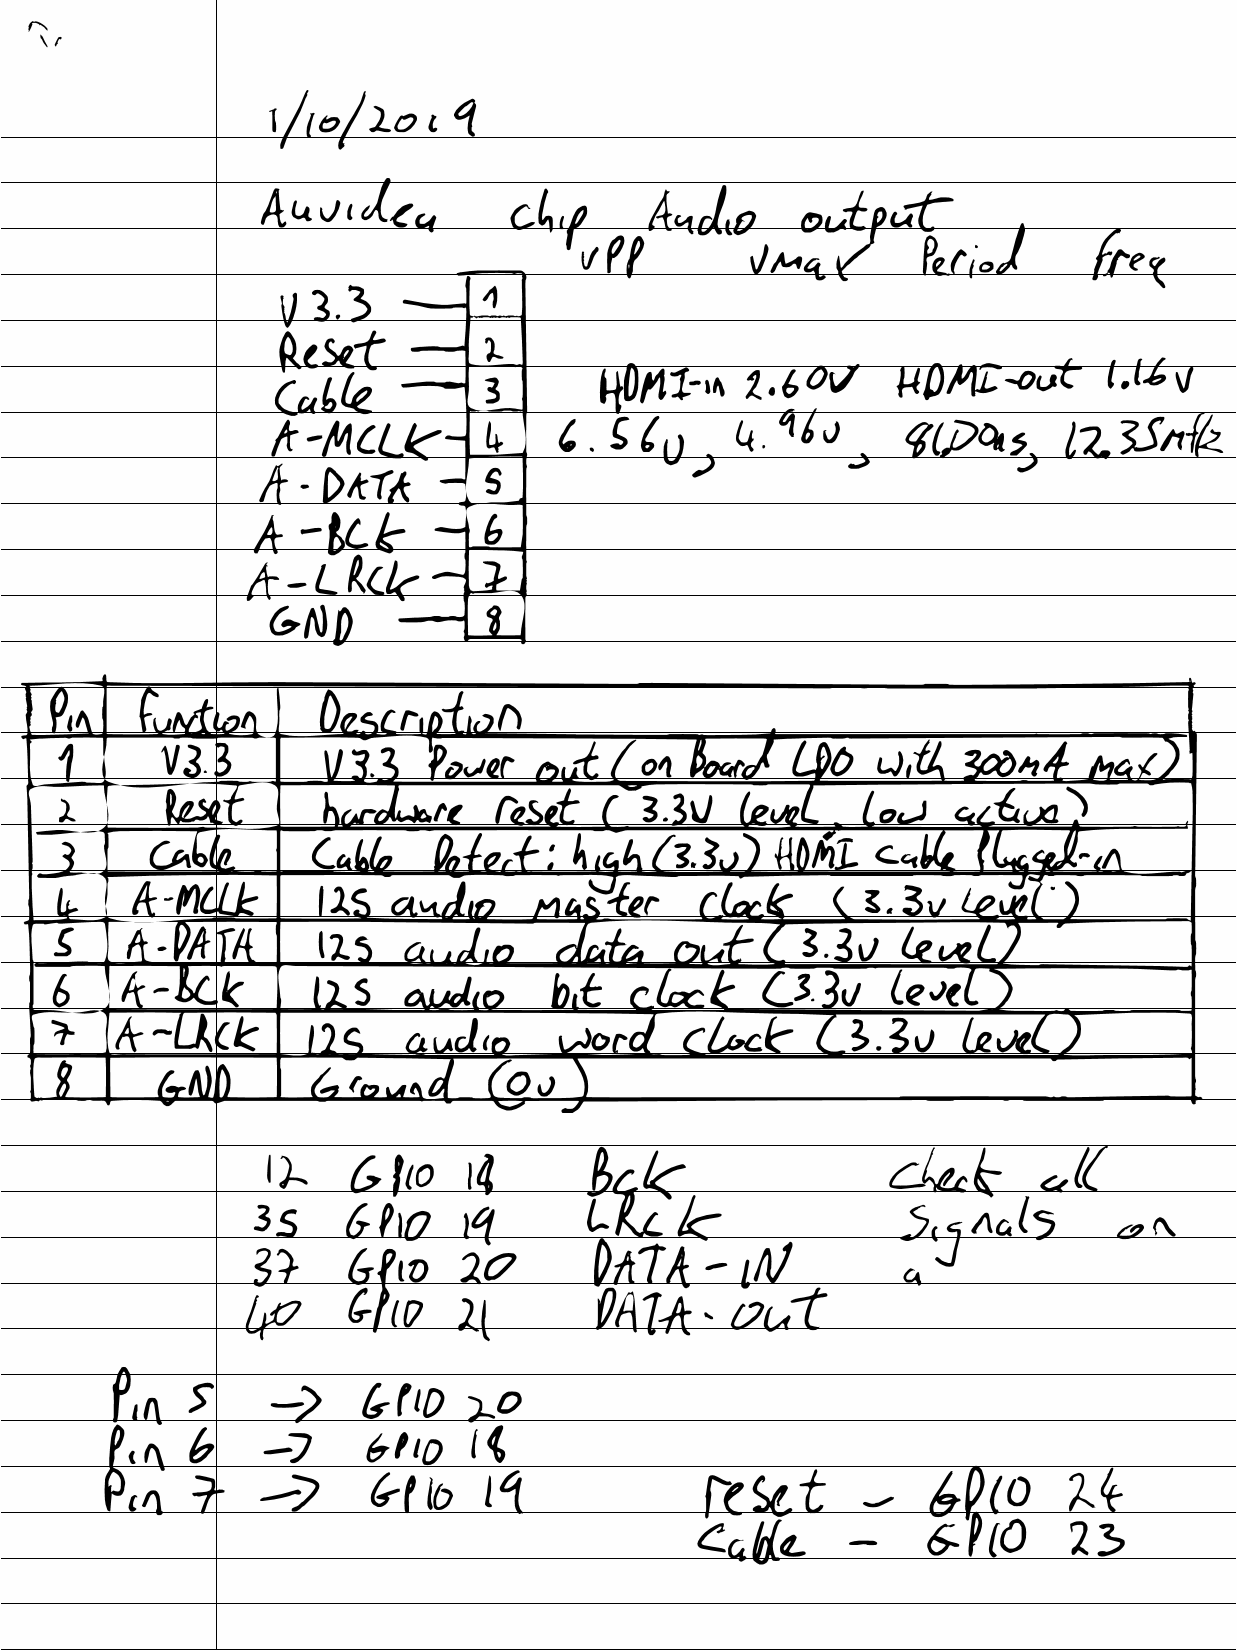 1/10/2019
Auvidea chip Audio output
VPP Vmax Period freq
V3.3 1
Reset 2
Cable 3 HDMI-in 2.60V HDMI-out 1.16V
A-MCLK 4 6.56V, 4.96V, 81.00ns, 12.35MHz
A-DATA 5
A-BCK 6
A-LRCK 7
GND 8
Pin function Description
1 V3.3 V3.3 Power out (on Board LDO with 300mA max)
2 Reset hardware reset (3.3V level, low active)
3 Cable Cable Detect: high (3.3V) HDMI cable plugged-in
4 A-MCLK I2S audio master clock (3.3V level)
5 A-DATA I2S audio data out (3.3V level)
6 A-BCK I2S audio bit clock (3.3V level)
7 A-LRCK I2S audio word clock (3.3V level)
8 GND Ground (0V)
12 GPIO 18 Bck check all
35 GPIO 19 LRCK signals on
37 GPIO 20 DATA-IN a
40 GPIO 21 DATA-out
Pin 5 → GPIO 20
Pin 6 → GPIO 18
Pin 7 → GPIO 19 reset - GPIO 24
Cable - GPIO 23